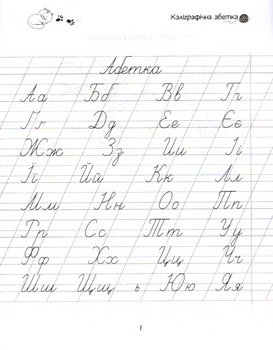 Каліграфічна абетка
Абетка
Аа Бб Вв Гг
Ґґ Дд Ее Єє
Жж Зз Ии Іі
Її Йй Кк Лл
Мм Нн Оо Пп
Рр Сс Тт Уу
Фф Хх Цц Чч
Шш Щщ ь Юю Яя
1